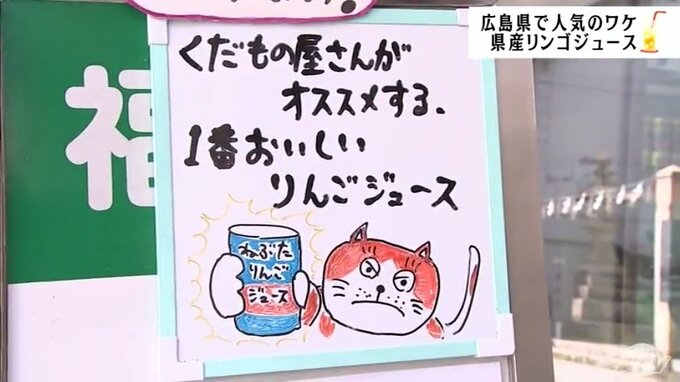 広島県で人気のワケ
県産リンゴジュース
くだもの屋さんが
オススメする、
1番おいしい
りんごジュース
ねぶた
りんご
ジュース
福